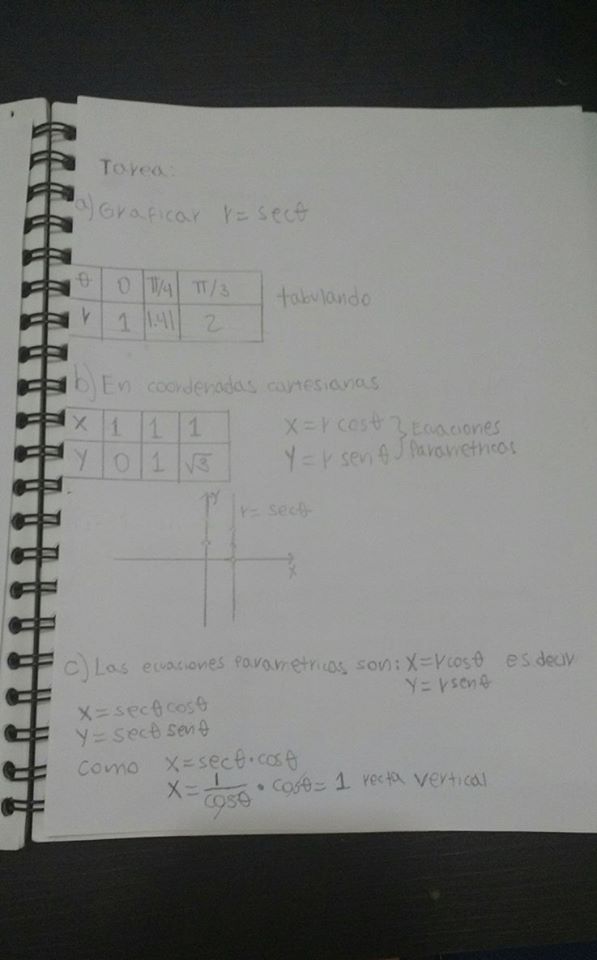 Tarea:
a) Graficar r = secθ
θ 0 π/4 π/3
r 1 1.41 2
tabulando
b) En coordenadas cartesianas
X 1 1 1
Y 0 1 √3
X = r cosθ } Ecuaciones
Y = r senθ } Parametricas
Y
r = secθ
X
c) Las ecuaciones Parametricas son: X = r cosθ es decir
Y = r senθ
X = secθ cosθ
Y = secθ senθ
Como X = secθ • cosθ
X = 1/cosθ • cosθ = 1 recta vertical